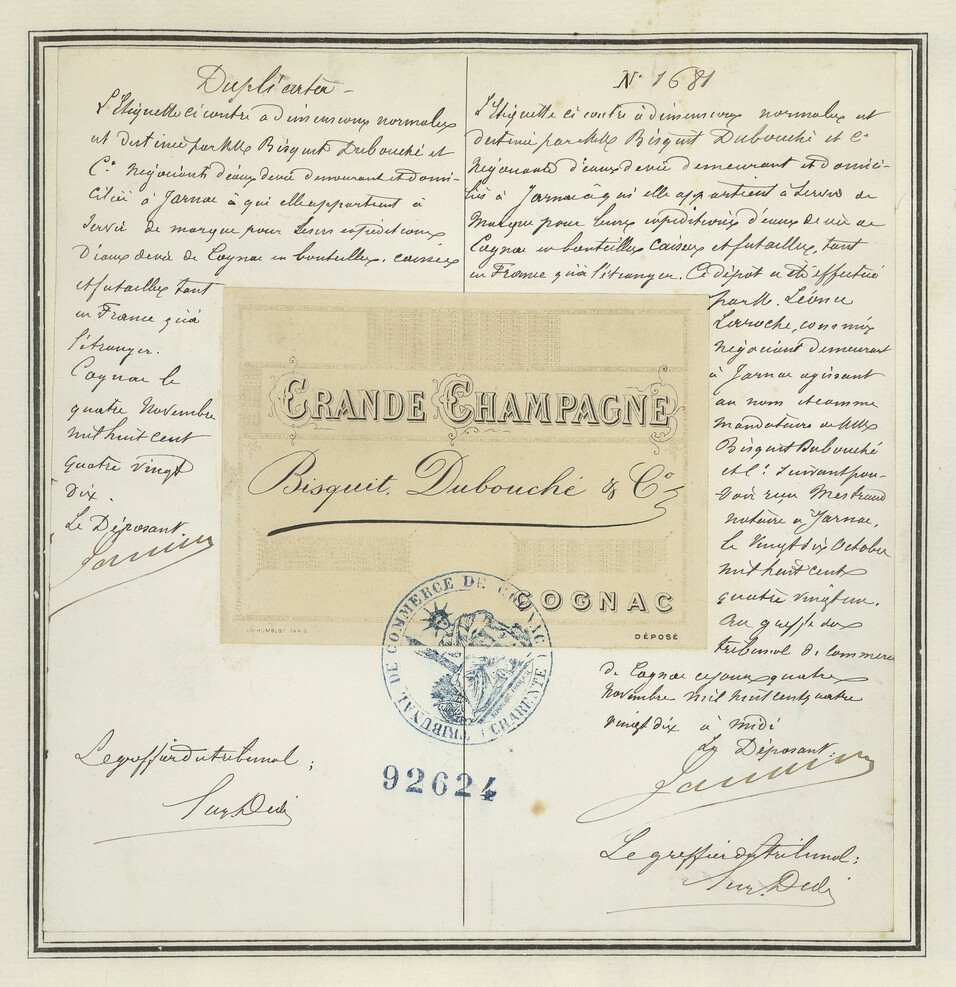 Duplicata -
L'Etiquette ci contre a dimensions normales
et destinée par MM Bisquit Dubouché et
Cie Négociants d'eaux de vie demeurant et domi-
ciliés à Jarnac à qui elle appartient à
servir de marque pour leurs expéditions
d'eaux de vie de Cognac en bouteilles, caisses
et futailles tant
en France qu'à
l'étranger.
Cognac le
quatre Novembre
mil huit cent
quatre vingt
dix.
Le Déposant.
Le greffier du tribunal;
No 1681
L'Etiquette ci contre à dimensions normales et
destinée par MM Bisquit Dubouché et Cie
Négociants d'eaux de vie demeurant et domici-
liés à Jarnac à qui elle appartient à servir de
marque pour leurs expéditions d'eaux de vie de
Cognac en bouteilles caisses et futailles, tant
en France qu'à l'étranger. Ce dépot a été effectué
par M. Léonce
Laroche, commis
négociant demeurant
à Jarnac agissant
au nom et comme
mandataire de MM
Bisquit Dubouché
et Cie suivant pou-
voir reçu Mestraud
notaire à Jarnac,
le Vingt dix Octobre
mil huit cent
quatre vingt un.
Au greffe du
tribunal de commerce
de Cognac ce jour quatre
Novembre mil huit cent quatre
vingt dix à midi
Le Déposant:
Le greffier du tribunal:
GRANDE CHAMPAGNE
Bisquit, Dubouché & Co
COGNAC
DÉPOSÉ
TRIBUNAL DE COMMERCE DE COGNAC
(CHARENTE)
92624